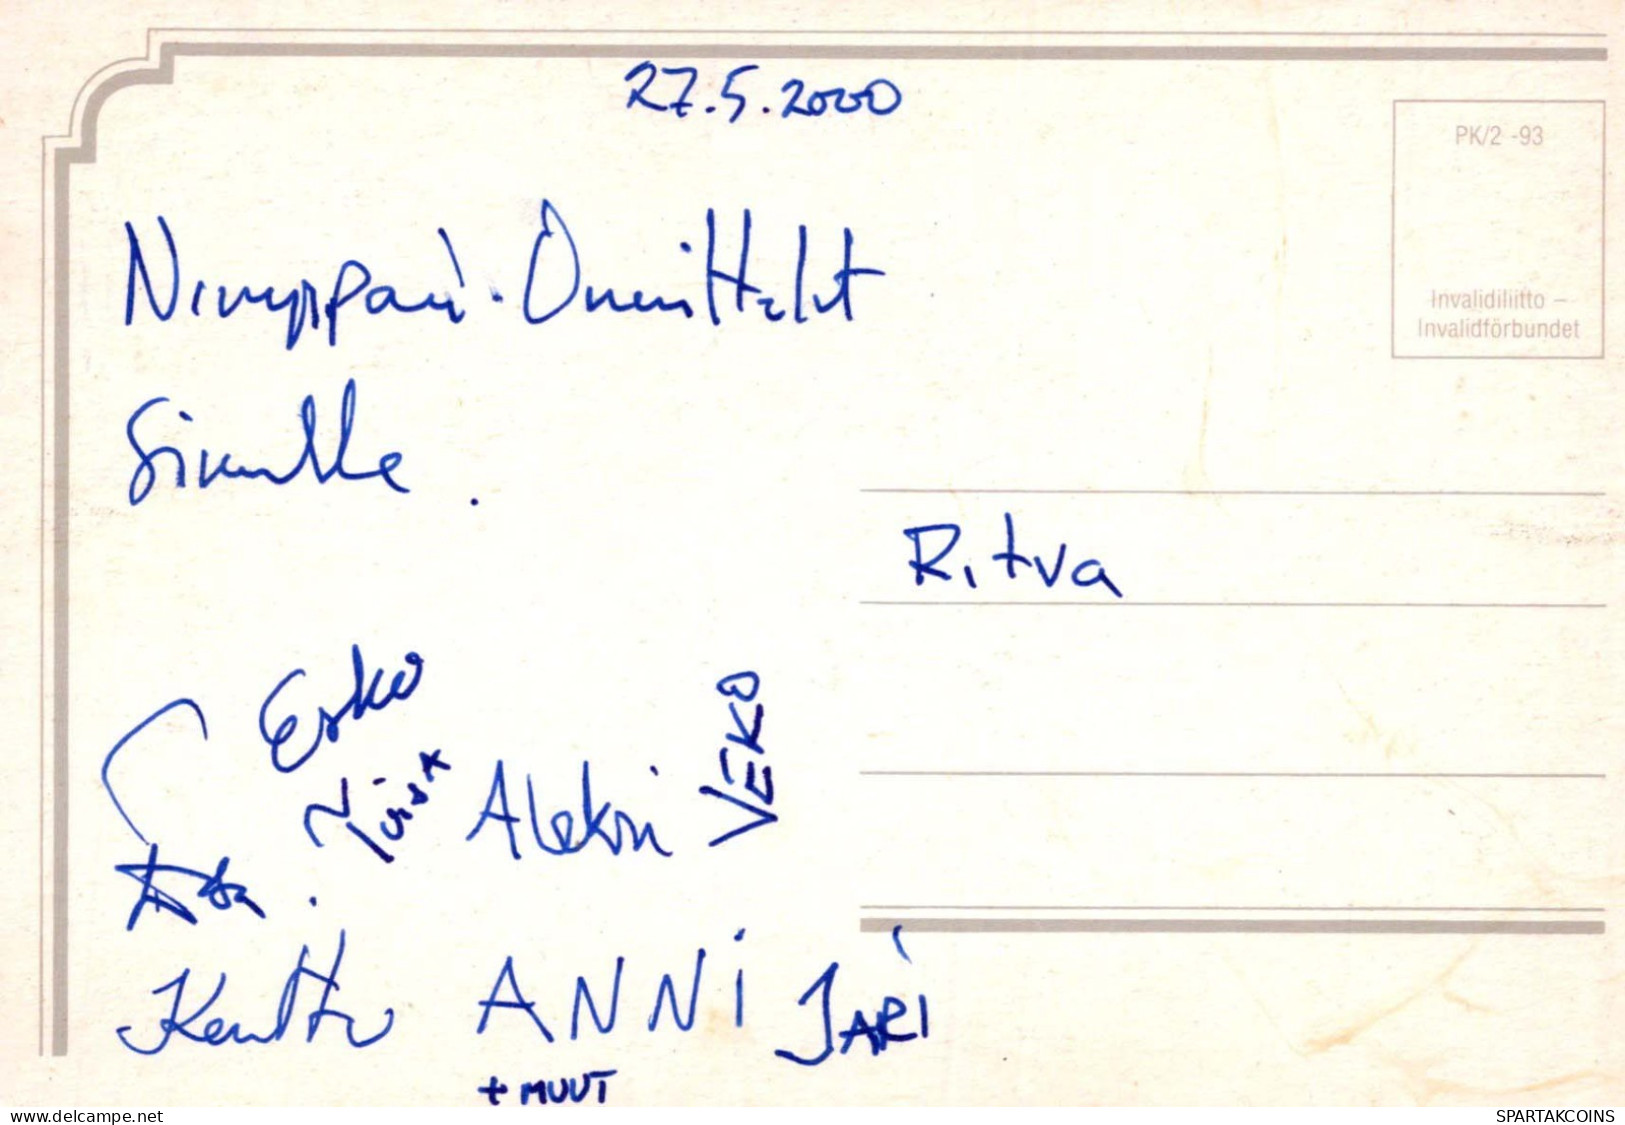 27.5.2000
PK/2 -93
Invalidiliitto –
Invalidförbundet
Onnittelut
Sinulle.
Ritva
Esko
Aleksi
VEKO
Kerttu
ANNi
JARI
+ MUUT
www.delcampe.net
SPARTAKCOINS